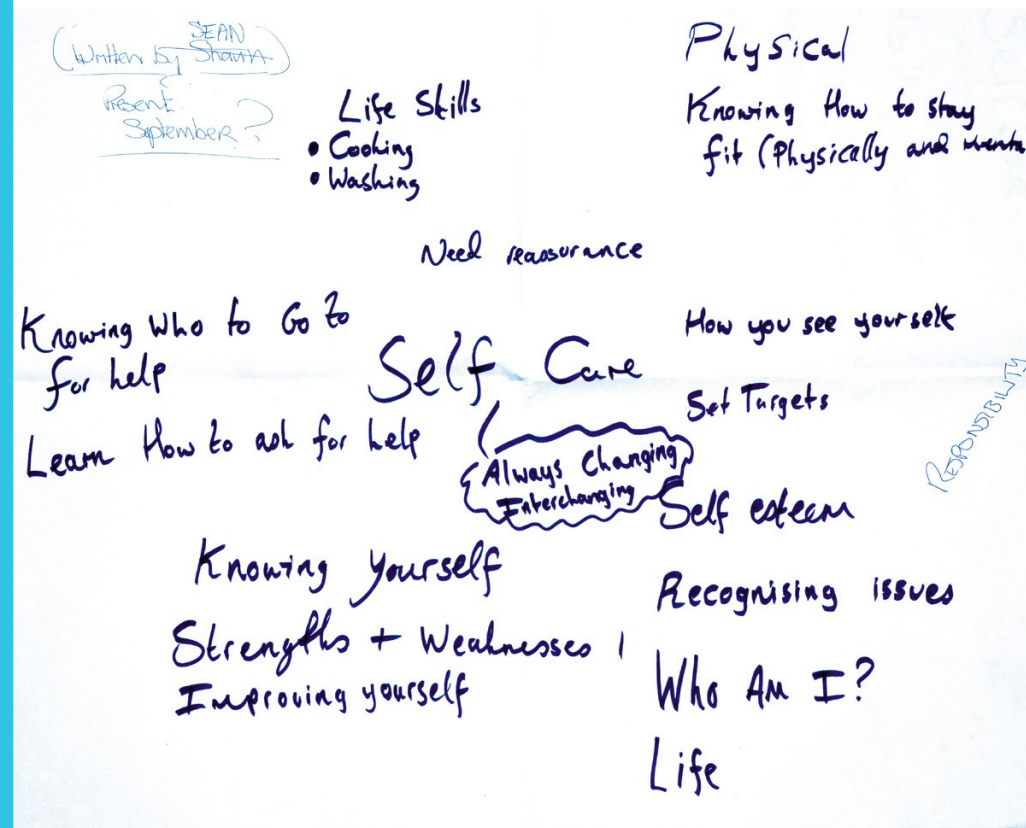 SEAN
(Written by Shaun)
Present
September?
Life Skills
• Cooking
• Washing
Physical
Knowing How to stay
fit (Physically and menta
Need reassurance
Knowing Who to Go to
for help
Learn How to ask for help
Self Care
Always Changing
Interchanging
How you see yourself
Set Targets
RESPONSIBILITY
Self esteem
Knowing yourself
Strengths + Weaknesses
Improving yourself
Recognising issues
Who Am I?
Life